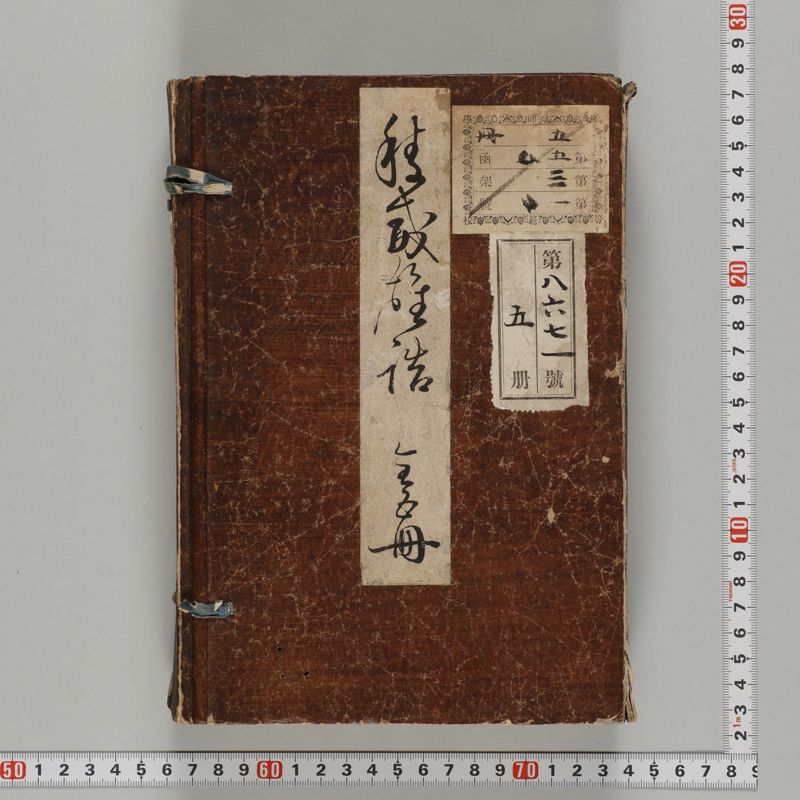 稜威雄誥 全五冊
第八六七一號
五册
第 函
第 架
第 號
30 9 8 7 6 5 4 3 2 1 20 9 8 7 6 5 4 3 2 1 10 9 8 7 6 5 4 3 2
1m
50 1 2 3 4 5 6 7 8 9 60 1 2 3 4 5 6 7 8 9 70 1 2 3 4 5 6 7 8 9